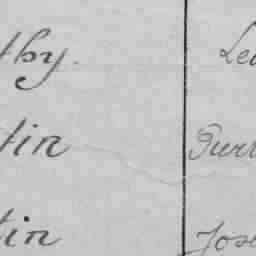 thy. Lea
tin Purr
tin Jose